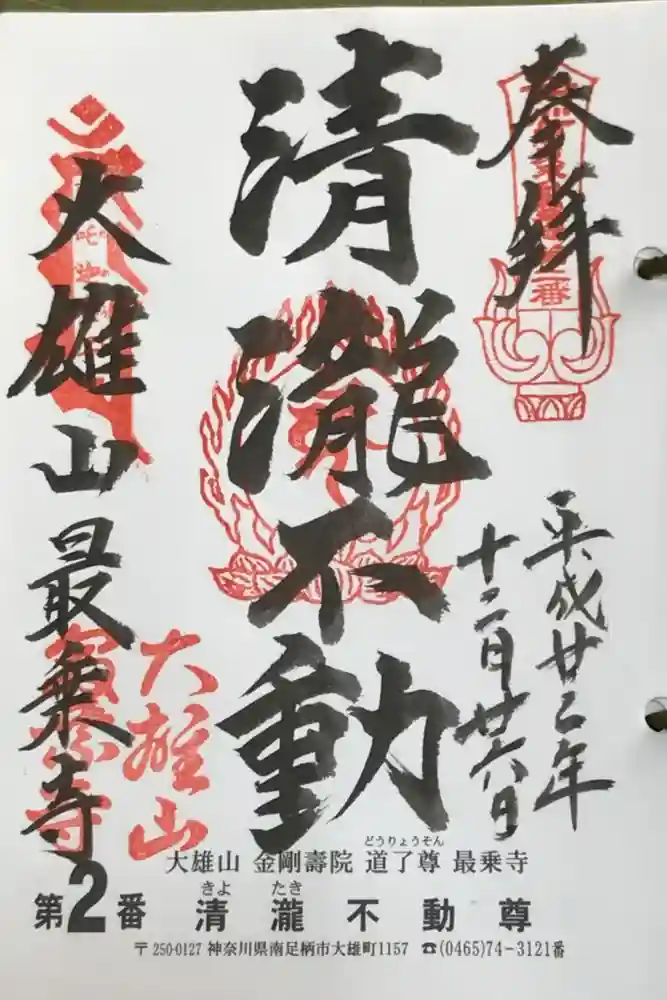 奉拝
平成廿二年
十二月廿六日
清瀧不動
大雄山最乗寺
大雄山
最乗寺
大雄山 金剛壽院 道了尊 最乗寺
どうりょうそん
第2番 清瀧不動尊
きよ たき
〒250-0127 神奈川県南足柄市大雄町1157 ☎(0465)74-3121番